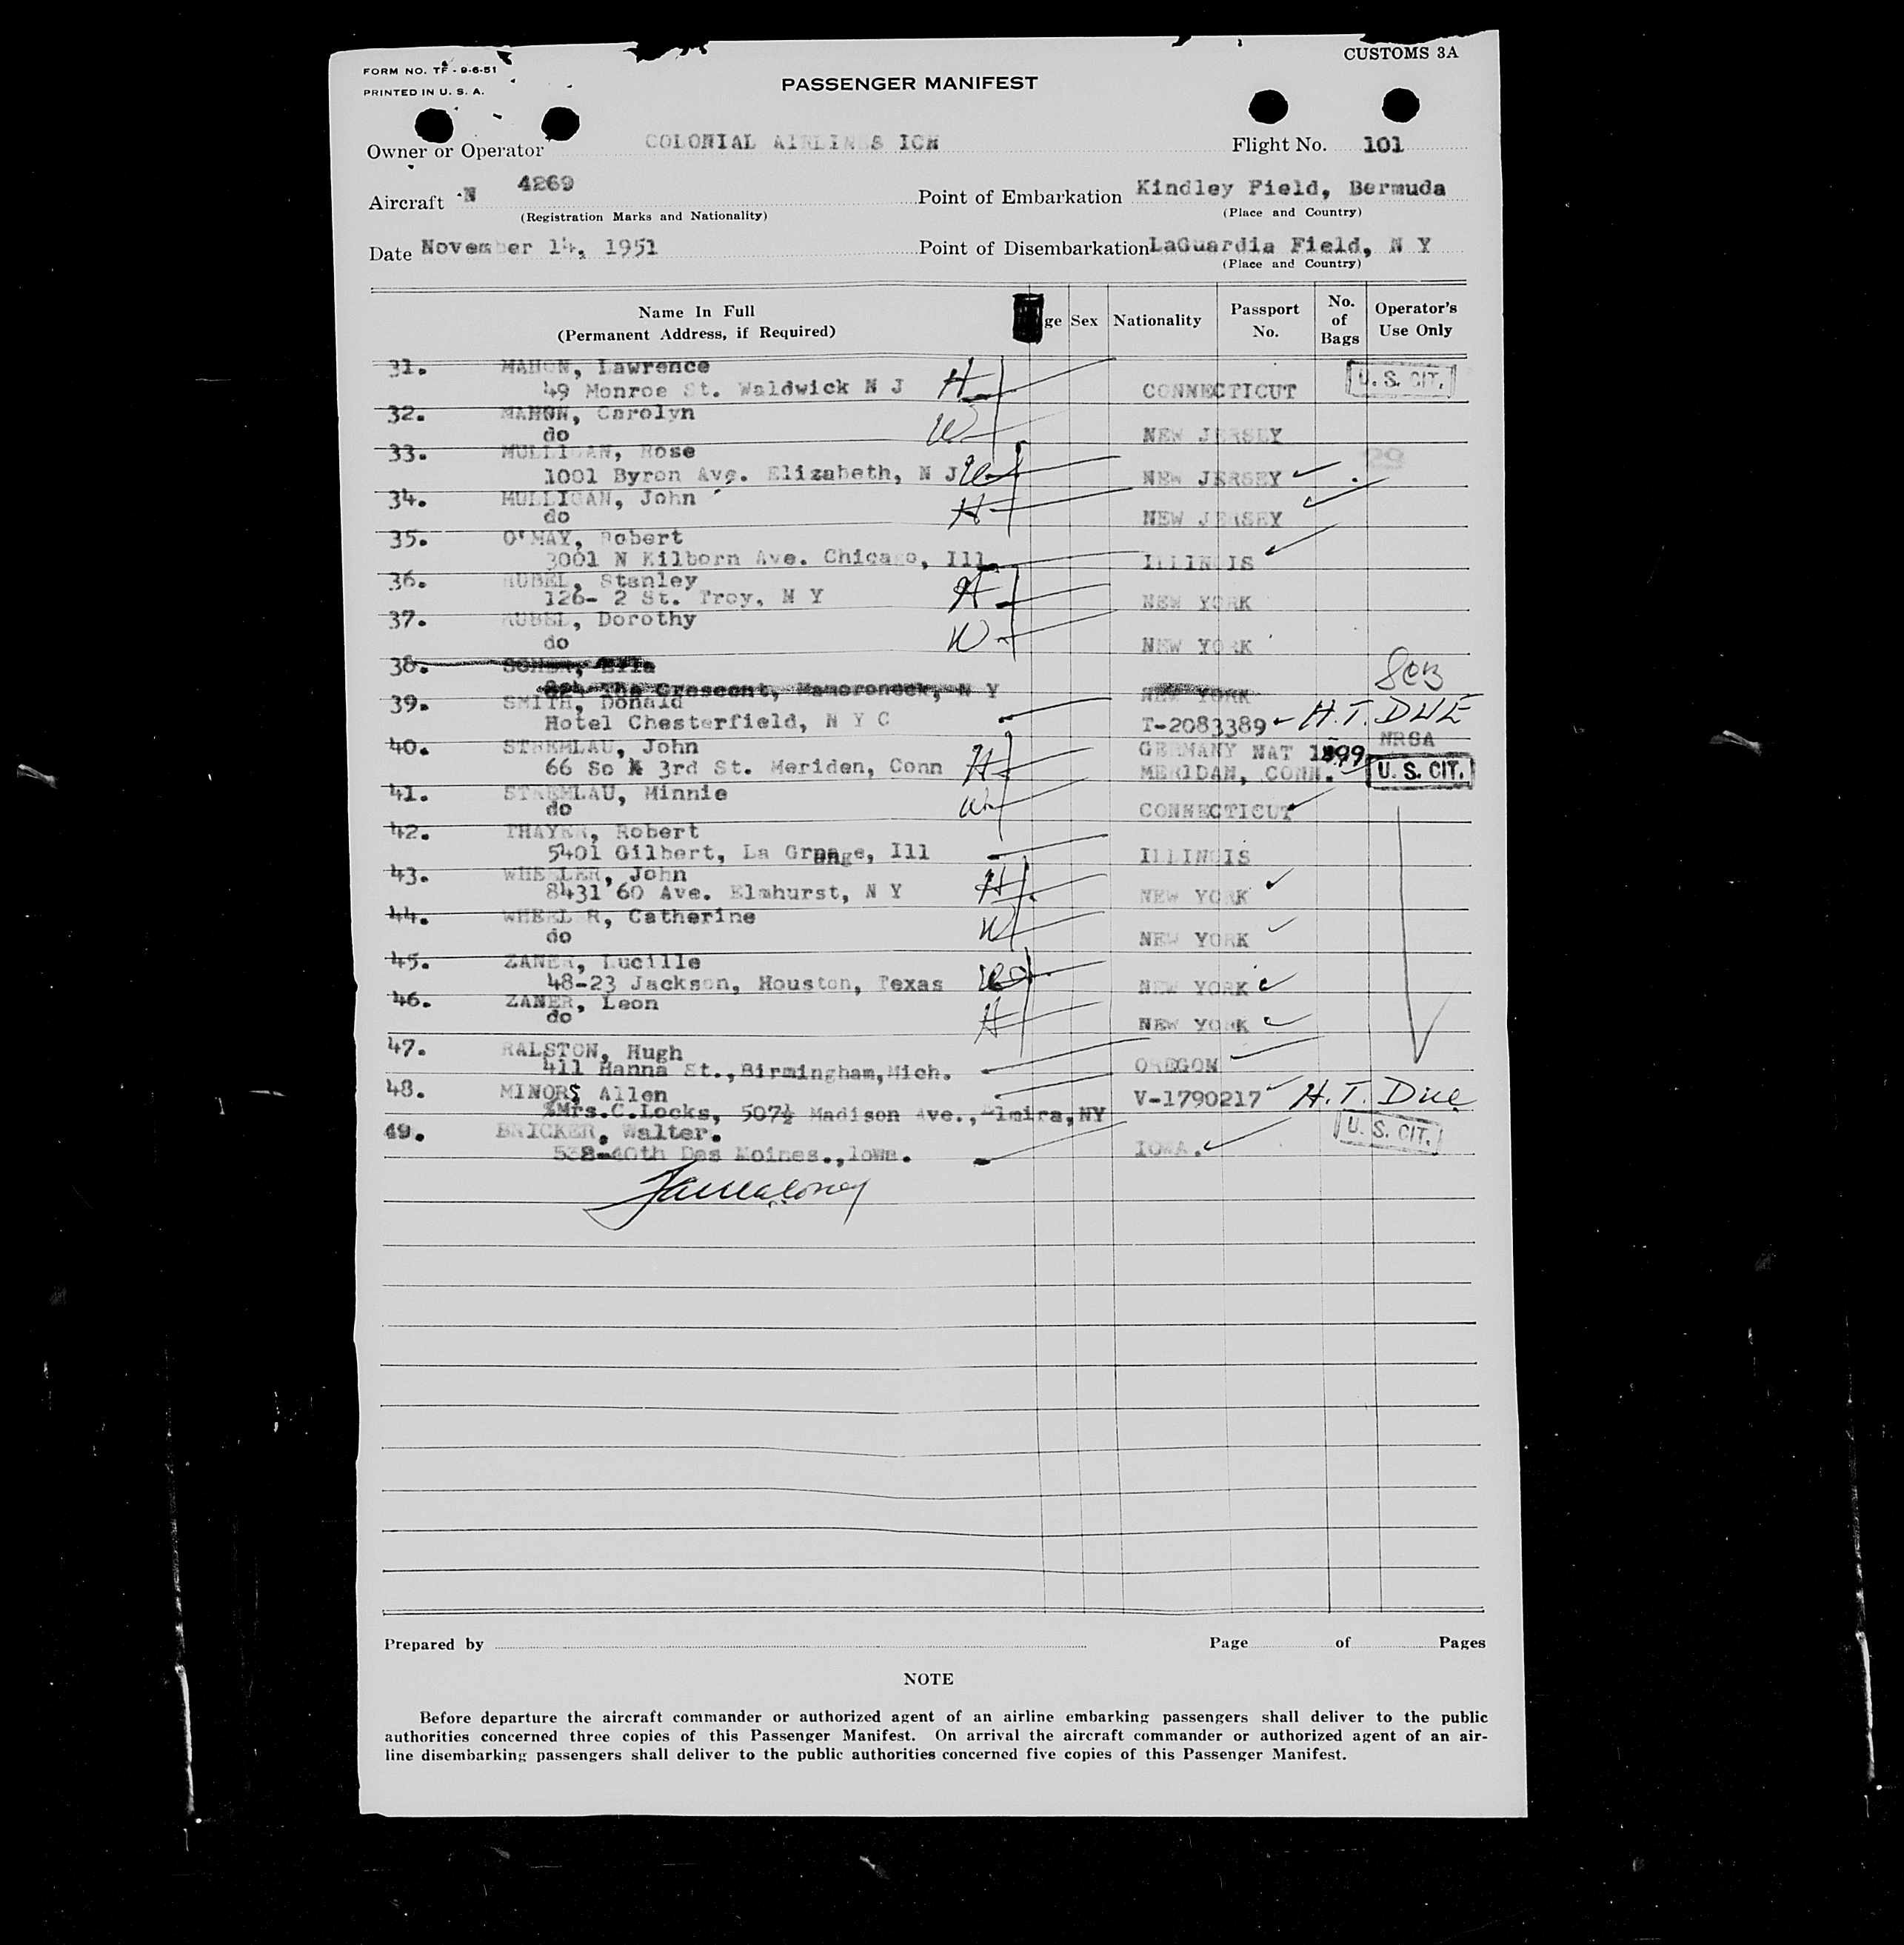 FORM NO. TF - 9-6-51
PRINTED IN U. S. A.
CUSTOMS 3A
PASSENGER MANIFEST
Owner or Operator COLONIAL AIRLINES ICN
Flight No. 101
Aircraft N 4269
(Registration Marks and Nationality)
Point of Embarkation Kindley Field, Bermuda
(Place and Country)
Date November 14, 1951
Point of Disembarkation LaGuardia Field, N Y
(Place and Country)
Name In Full
(Permanent Address, if Required)
ge Sex Nationality Passport No. No. of Bags Operator's Use Only
31. MAHON, Lawrence
49 Monroe St. Waldwick N J H CONNECTICUT U. S. CIT.
32. MAHON, Carolyn
do W NEW JERSEY
33. MULLIGAN, Rose
1001 Byron Ave. Elizabeth, N J W NEW JERSEY
34. MULLIGAN, John
do H NEW JERSEY
35. O'MAY, Robert
3001 N Kilborn Ave. Chicago, Ill ILLINOIS
36. RUBEL, Stanley
126- 2 St. Troy, N Y H NEW YORK
37. RUBEL, Dorothy
do W NEW YORK
38. Ella
The Crescent, Mamaroneck, N Y NEW YORK
39. SMITH, Donald
Hotel Chesterfield, N Y C T-2083389 H.T. DUE
NRSA
40. STREMLAU, John GERMANY NAT 1899
66 So 3rd St. Meriden, Conn H MERIDAN, CONN. U. S. CIT.
41. STREMLAU, Minnie
do W CONNECTICUT
42. THAYER, Robert
5401 Gilbert, La Grange, Ill ILLINOIS
43. WHEELER, John
8431 60 Ave. Elmhurst, N Y H NEW YORK
44. WHEEL R, Catherine
do W NEW YORK
45. ZANER, Lucille
48-23 Jackson, Houston, Texas W NEW YORK
46. ZANER, Leon
do H NEW YORK
47. RALSTON, Hugh
411 Hanna St.,Birmingham,Mich. OREGON
48. MINORS Allen V-1790217 H.T. Due
%Mrs.C.Locks, 507½ Madison Ave.,Elmira,NY
49. BRICKER, Walter. U. S. CIT.
538-40th Des Moines.,Iowa. IOWA.
Prepared by
Page of Pages
NOTE
Before departure the aircraft commander or authorized agent of an airline embarking passengers shall deliver to the public
authorities concerned three copies of this Passenger Manifest. On arrival the aircraft commander or authorized agent of an air-
line disembarking passengers shall deliver to the public authorities concerned five copies of this Passenger Manifest.